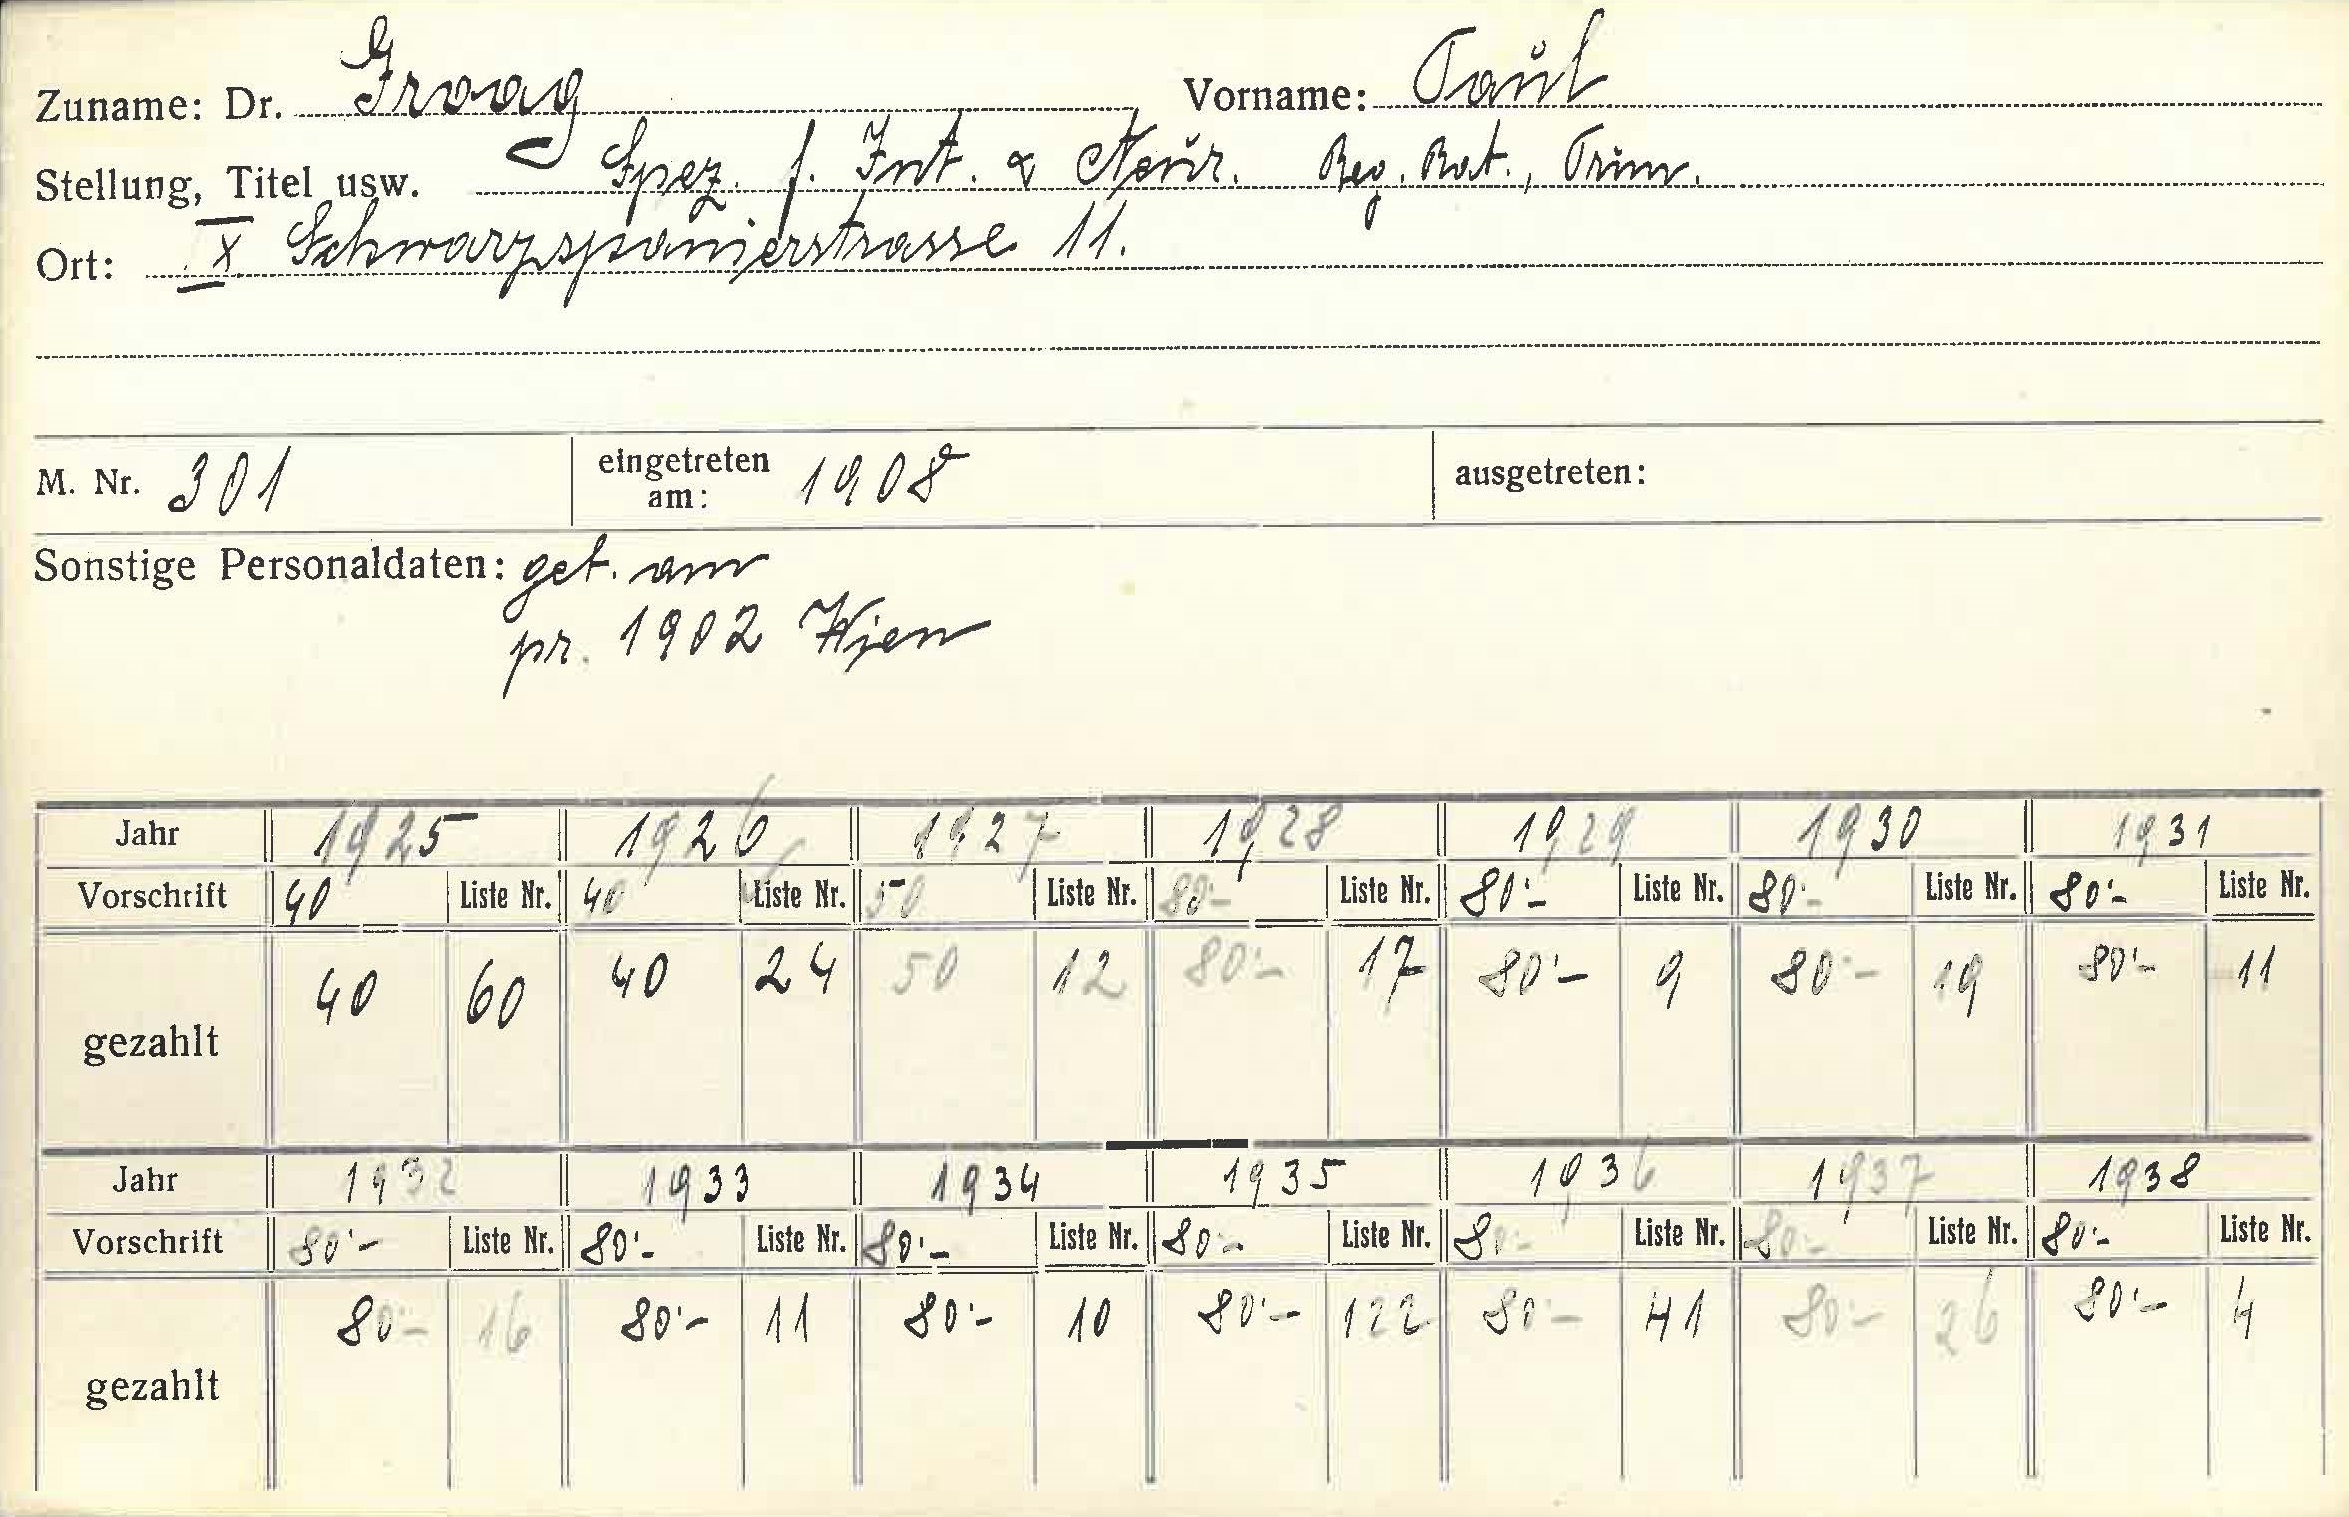 Zuname: Dr. Groag Vorname: Paul
Stellung, Titel usw. Spez. f. Int. & Neur. Reg. Rat., Prim.
Ort: IX Schwarzspanierstrasse 11.
M. Nr. 301 eingetreten am: 1908 ausgetreten:
Sonstige Personaldaten: geb. am
pr. 1902 Wien
Jahr 1925 1926 1927 1928 1929 1930 1931
Vorschrift 40 Liste Nr. 40 Liste Nr. 50 Liste Nr. 80·- Liste Nr. 80·- Liste Nr. 80·- Liste Nr. 80·- Liste Nr.
gezahlt 40 60 40 24 50 12 80·- 17 80·- 9 80·- 19 80·- 11
Jahr 1932 1933 1934 1935 1936 1937 1938
Vorschrift 80·- Liste Nr. 80·- Liste Nr. 80·- Liste Nr. 80·- Liste Nr. 80·- Liste Nr. 80·- Liste Nr. 80·- Liste Nr.
gezahlt 80·- 16 80·- 11 80·- 10 80·- 122 80·- 41 80·- 26 80·- 4